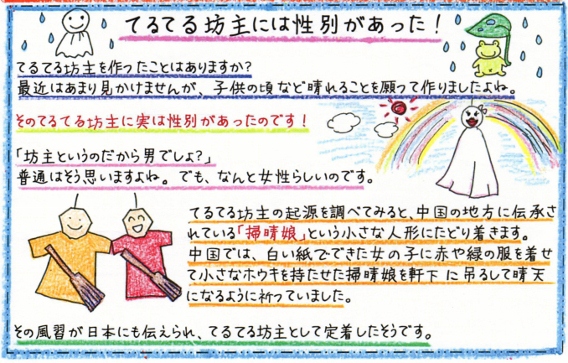 てるてる坊主には性別があった！
てるてる坊主を作ったことはありますか？
最近はあまり見かけませんが、子供の頃など晴れることを願って作りましたよね。
そのてるてる坊主に実は性別があったのです！
「坊主というのだから男でしょ？」
普通はそう思いますよね。でも、なんと女性らしいのです。
てるてる坊主の起源を調べてみると、中国の地方に伝承さ
れている「掃晴娘」という小さな人形にたどり着きます。
中国では、白い紙でできた女の子に赤や緑の服を着せ
て小さなホウキを持たせた掃晴娘を軒下に吊るして晴天
になるように祈っていました。
その風習が日本にも伝えられ、てるてる坊主として定着したそうです。